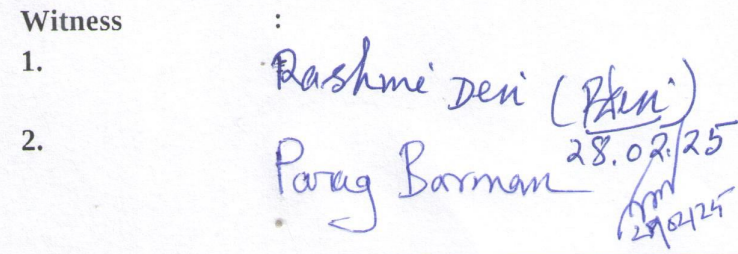 Witness :
1. Rashmi Devi (
28.02.25
2. Parag Barman
28/02/25